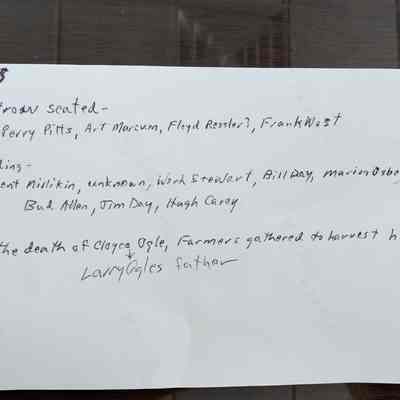 row seated-
Perry Pitts, Art Marcum, Floyd Ressler?, Frank West
ding-
ent Millikin, unknown, Work Stewart, Bill Day, Marion Osbo
Bud Allen, Jim Day, Hugh Carey
the death of Clayce Ogle, Farmers gathered to harvest h
Larry Ogles father